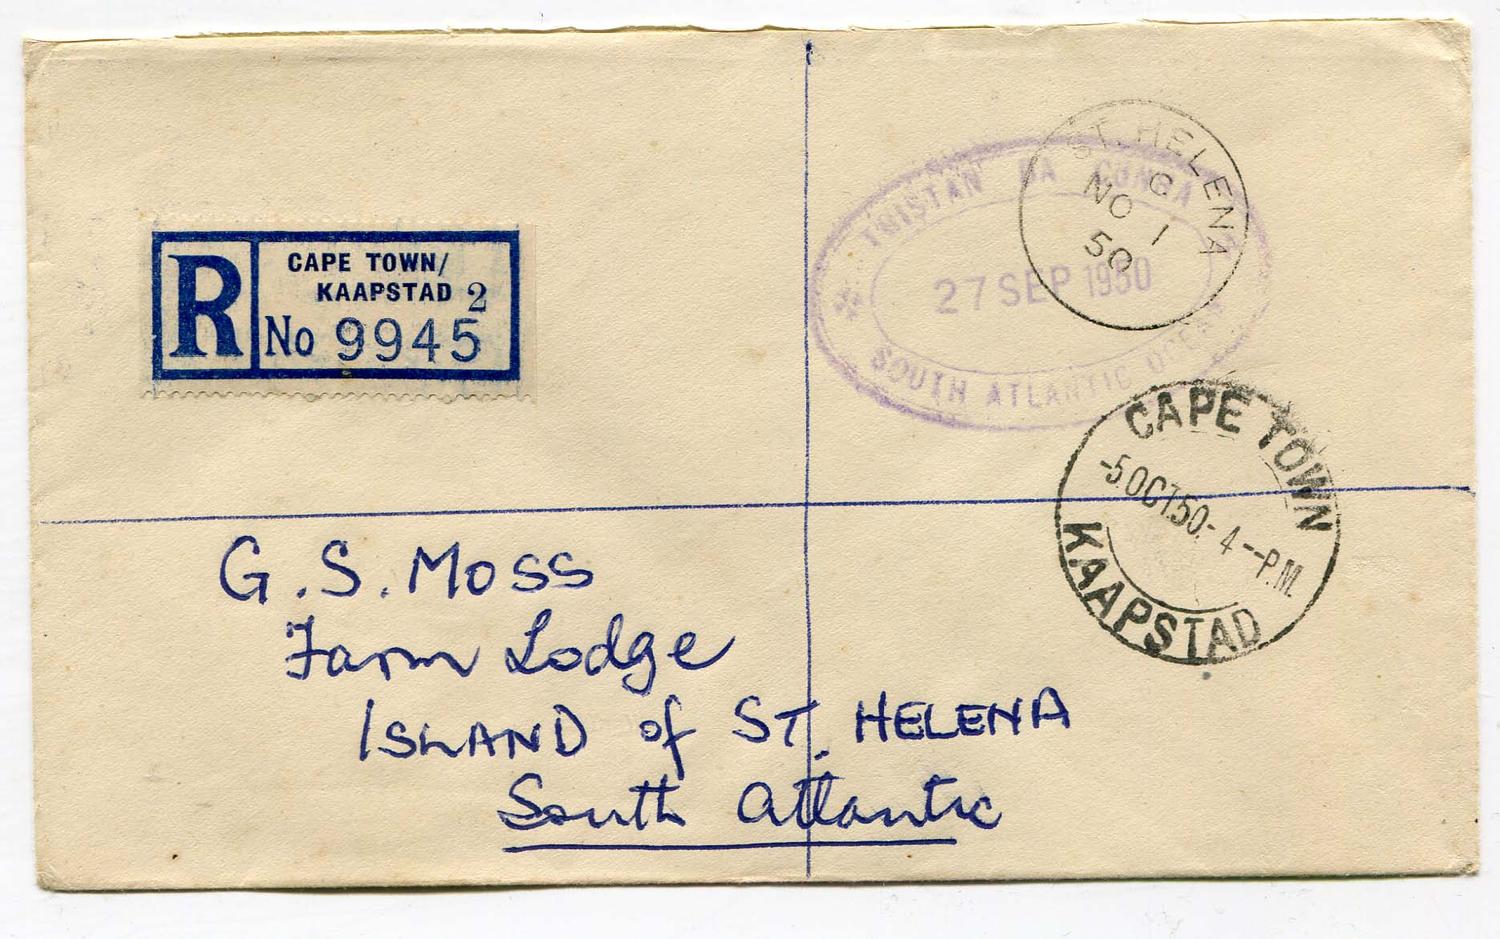 R
CAPE TOWN/
KAAPSTAD 2
No 9945
ST. HELENA
C
NO 1
50
TRISTAN DA CUNHA
27 SEP 1950
SOUTH ATLANTIC OCEAN
CAPE TOWN
-5OCT.50-4--P.M.
KAAPSTAD
G.S. Moss
Farm Lodge
ISLAND of ST. HELENA
South Atlantic